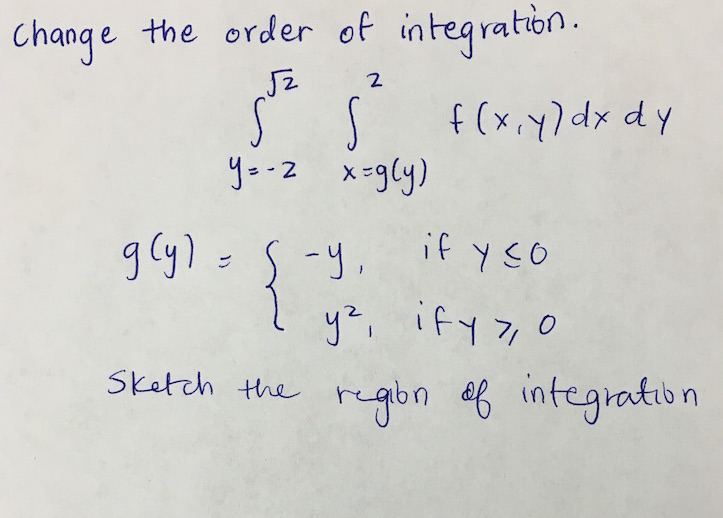 Change the order of integration.
∫_{y=-2}^{√2} ∫_{x=g(y)}^{2} f(x,y) dx dy
g(y) = { -y, if y ≤ 0
y², if y ≥ 0
Sketch the region of integration